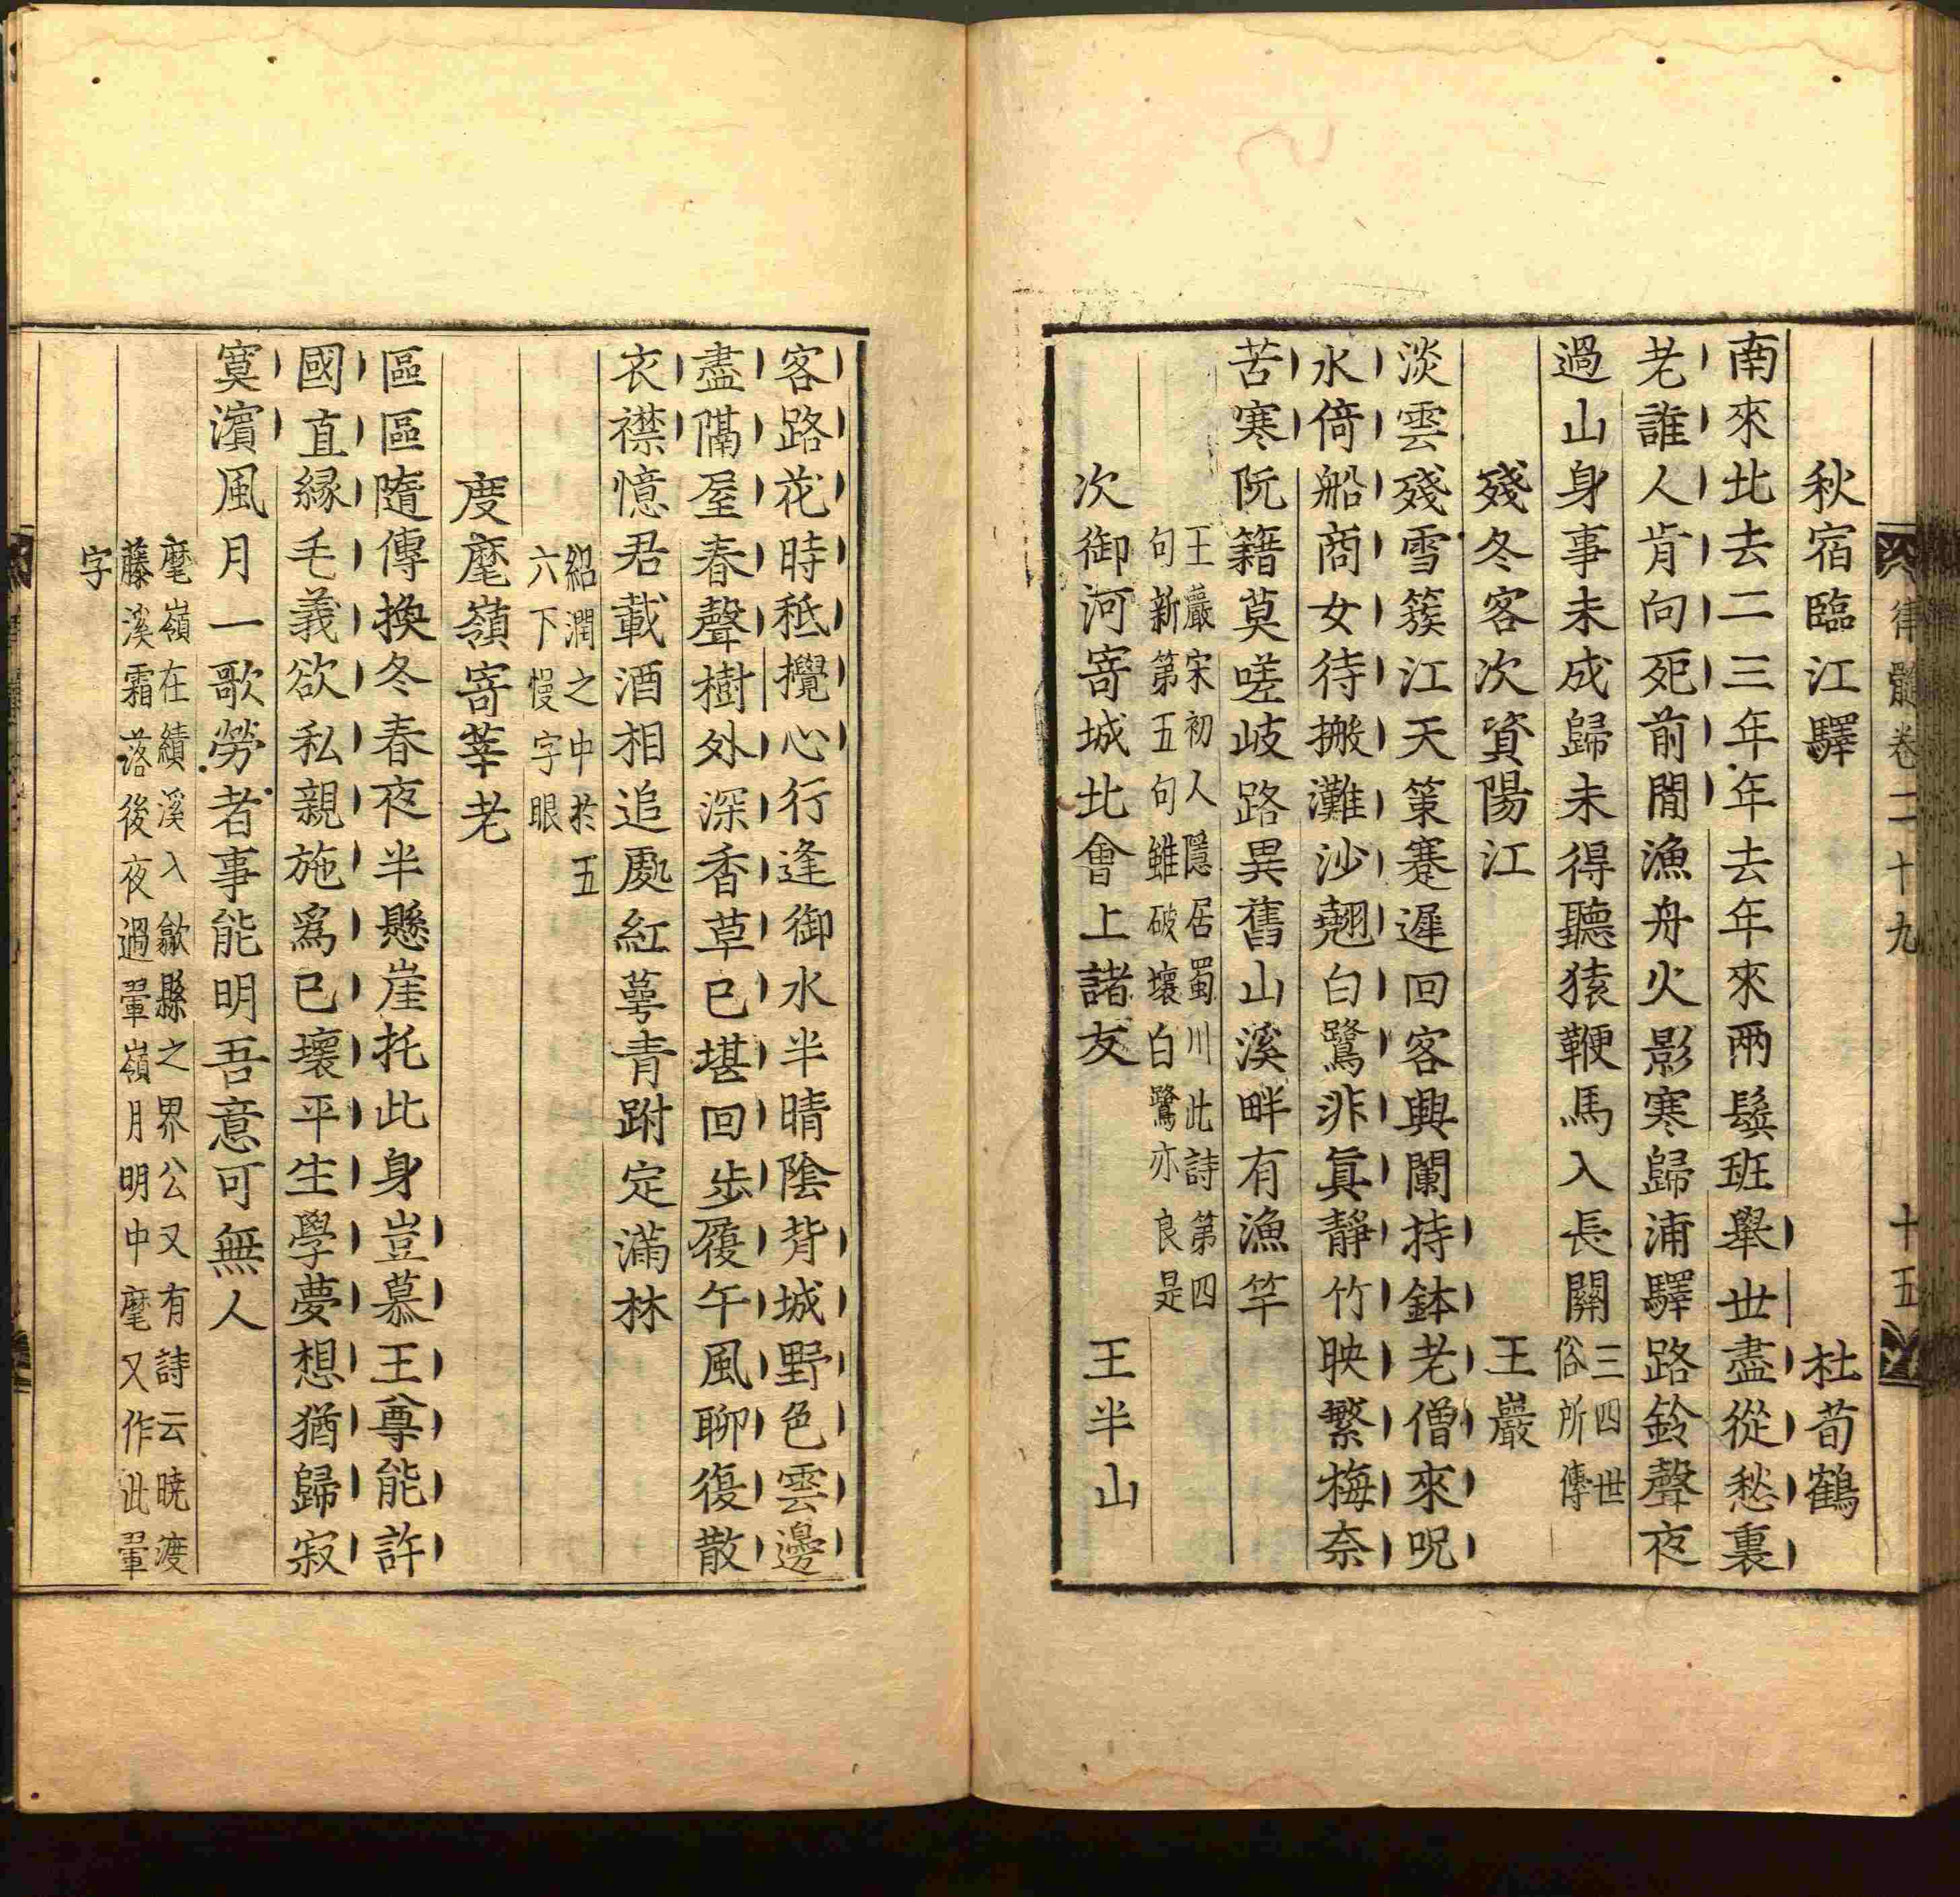 律髓卷二十九 十五
秋宿臨江驛 杜荀鶴
南來北去二三年年去年來兩鬂班舉世盡從愁裏
老誰人肯向死前閒漁舟火影寒歸浦驛路鈴聲夜
過山身事未成歸未得聽猿鞭馬入長關三四世
俗所傳
殘冬客次資陽江 王巖
淡雲殘雪簇江天策蹇遲回客興闌持鉢老僧來呪
水倚船商女待搬灘沙翹白鷺非真靜竹映繁梅奈
苦寒阮籍莫嗟岐路異舊山溪畔有漁竿
王巖宋初人隱居蜀川此詩第四
句新第五句雖破壞白鷺亦良是
次御河寄城北會上諸友 王半山
客路花時秪攪心行逢御水半晴陰背城野色雲邊
盡隔屋春聲樹外深香草已堪回步履午風聊復散
衣襟憶君載酒相追處紅萼青跗定滿林
紹潤之中扵五
六下慢字眼
度麾嶺寄莘老
區區隨傳換冬春夜半懸崖托此身豈慕王尊能許
國直縁毛義欲私親施爲已壞平生學夢想猶歸寂
寞濱風月一歌勞者事能明吾意可無人
麾嶺在績溪入歙縣之界公又有詩云曉渡
藤溪霜落後夜過翬嶺月明中麾又作此翬
字